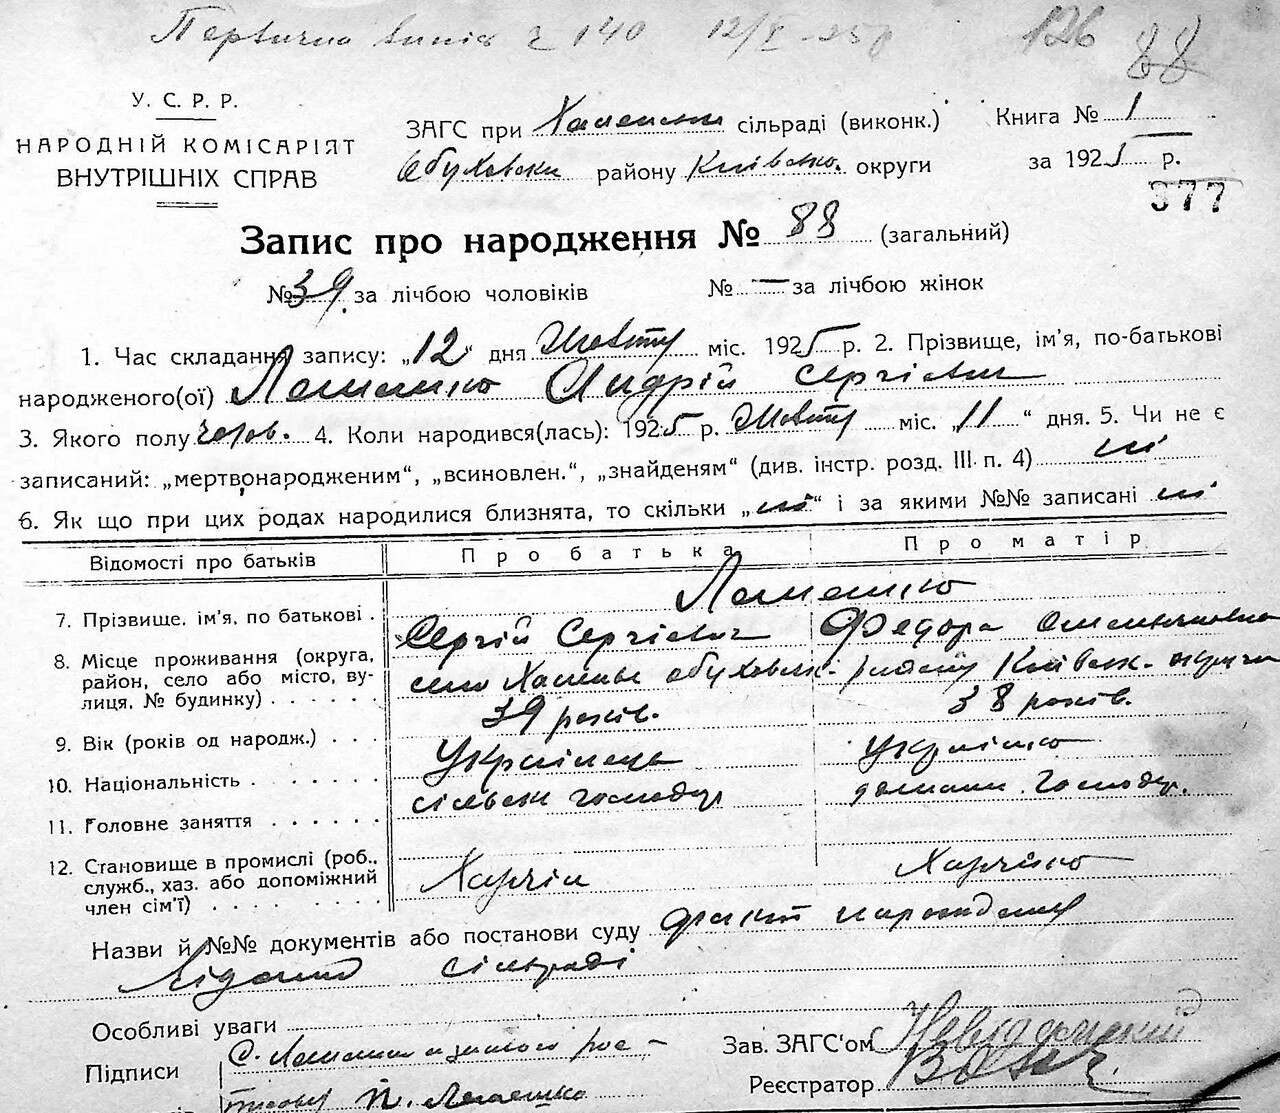 Первична випись ч 140 12/X-25р 126 88
У. С. Р. Р.
НАРОДНІЙ КОМІСАРІЯТ
ВНУТРІШНІХ СПРАВ
ЗАГС при сільраді (виконк.)
району округи
Книга № 1
за 1925 р.
377
Запис про народження № 88 (загальний)
№ 39 за лічбою чоловіків № — за лічбою жінок
1. Час складання запису: „12“ дня Жовтн міс. 1925 р. 2. Прізвище, ім'я, по-батькові
народженого(ої) Андрій Сергієвич
3. Якого полу 4. Коли народився(лась): 1925 р. Жовтн міс. „11“ дня. 5. Чи не є
записаний: „мертвонародженим“, „всиновлен.“, „знайденям“ (див. інстр. розд. III п. 4) ні
6. Як що при цих родах народилися близнята, то скільки „ні“ і за якими №№ записані ні
Відомості про батьків Про батька Про матір
7. Прізвище, ім'я, по батькові . Сергій Сергієвич Федора
8. Місце проживання (округа,
район, село або місто, ву-
лиця, № будинку) . . . . . село
9. Вік (років од народж.) . . . 39 років. 38 років.
10. Національність . . . . . . Українець Українка
11. Головне заняття . . . . . . сільськ господар домашн. господар.
12. Становище в промислі (роб.,
служб., хаз. або допоміжний
член сім'ї) . . . . . . . . Хазяїн Хазяйка
Назви й №№ документів або постанови суду факт народження
відомий сільраді
Особливі уваги
Підписи
Зав. ЗАГС'ом
Реєстратор